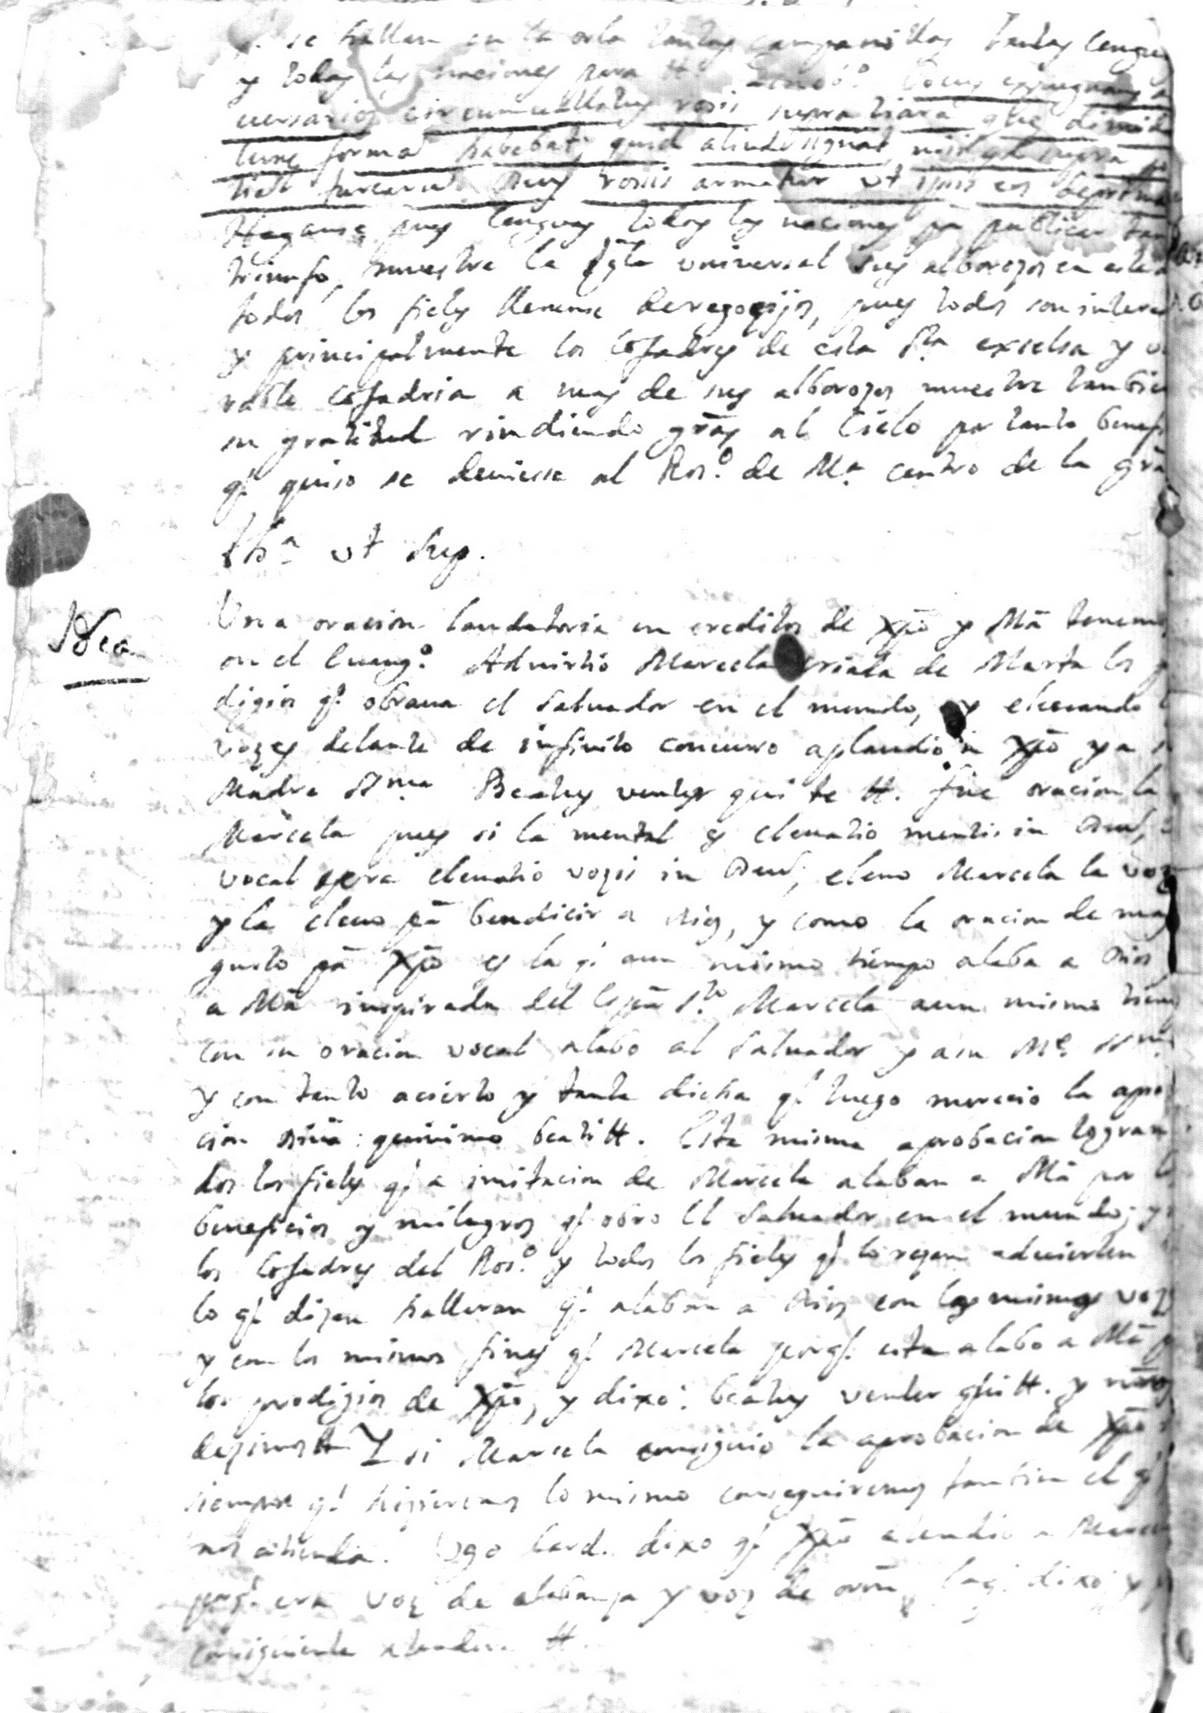 q.^e se hallan en la orla tantas campanillas tantas lengu
y todas las naciones para
circumvallatus rosis supra tiara quæ dimid
lunæ forma habebat; quid aliud signat, nisi
rosis armatur ut ipsis eos deprima
Haganse pues lenguas todas las naciones p.ª publicar tan
triunfo, muestre la Igla universal sus alborozos en este
todos los fieles llenense de regogijos, pues todos son interes
y principalmente los Cofadres de esta S.ta excelsa y v
rable Cofadria a mas de sus alborozos muestre tambien
su gratitud rindiendo gr̃as al Cielo por tanto benefi
q.^e quiso se deviesse al Ros.º de M.ª centro de la gr̃a
Th.ª ut Sup.
Idea
Una oracion laudatoria en creditos de Xp̃o y Mã tenemos
en el Euang.º Advirtio Marcela criada de Marta los p
digios q.^e obraua el Salvador en el mundo, y eleuando l
vozes delante de infinito concurso aplaudio a Xp̃o y a s
Madre SSma Beatus venter qui te tt. fue oracion la
Marcela pues si la mental es eleuatio mentis in Deum,
vocal sera eleuatio vozis in Deum; eleuo Marcela la voz
y la eleuo pã bendicir a Dios, y como la oracion de may
gusto pã Xp̃o es la q.^e a un mismo tiempo alaba a Dios
a Mã inspirada del Espũ S.to Marcela a un mismo tiem
con su oracion vocal alabo al Salvador y a su M.e SSma
y con tanto acierto y tanta dicha q.^e luego merecio la apro
cion diũa: quinimo beati tt. Esta misma aprobacion logran
dos los fieles q.^e a imitacion de Marcela alaban a Mã por l
beneficios y milagros q.^e obro el Salvador en el mundo; y
los Cofadres del Ros.º y todos los fieles q.^e lo rezan aduierten
lo q.^e dizen hallaran q.^e alaban a Dios con las mismas voz
y con los mismos fines q.^e Marcela porq.^e esta alabo a Mã p
los prodigios de Xp̃o, y dixo: beatus venter qui tt. y nr̃os
dezimos tt Y si Marcela consiguio la aprobacion de Xp̃o
siempre q.^e hizieremos lo mismo conseguiremos tambien el q.^e
nos atienda. Ugo Card. dixo q.^e Xp̃o atendio a Marcela
porq.^e era voz de alabanza y voz de oron, dixo y
consiguiente atendera tt.